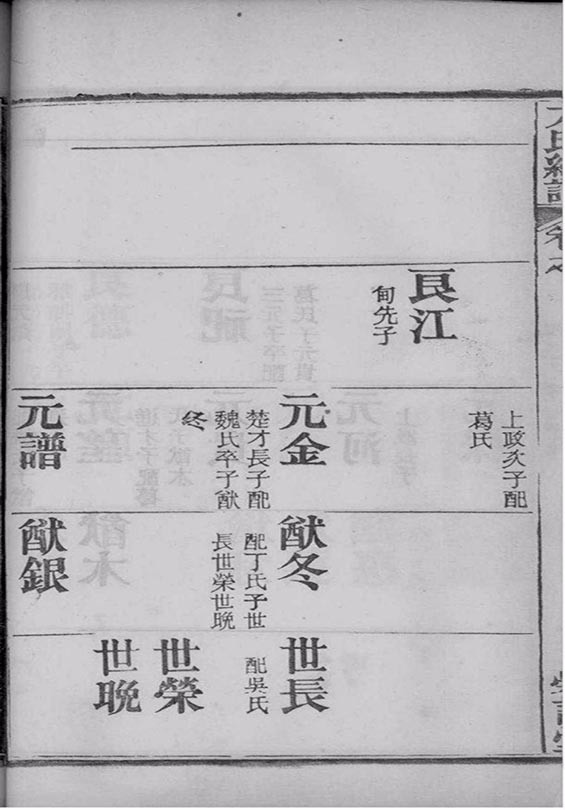 良江
旬先子
上政次子配
葛氏
元金
楚才長子配
魏氏卒子猷
冬
元譜
猷冬
配丁氏子世
長世榮世晚
猷銀
世長
配吳氏
世榮
世晚